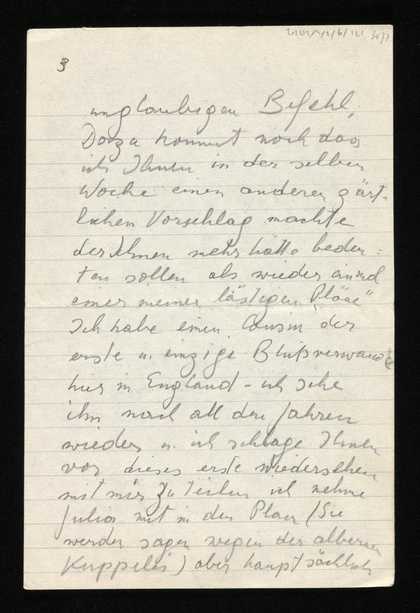 3
unglaubigen Befehl,
Dazu kommt noch das
ich Ihnen in der selben
Woche einen anderen zärt-
lichen Vorschlag machte
der Ihnen mehr hätte bedeu-
ten sollen als wieder einmal
einer meiner lästigen "Pläne"
Ich habe einen Cousin der
erste u. einzige Blutsverwandte
hier in England - ich sehe
ihn nach all den Jahren
wieder u. ich schlage Ihnen
vor dieses erste Wiedersehen
mit mir zu teilen ich nehme
Julia mit in den Plan (Sie
werden sagen wegen der albernen
Kuppelei) aber hauptsächlich